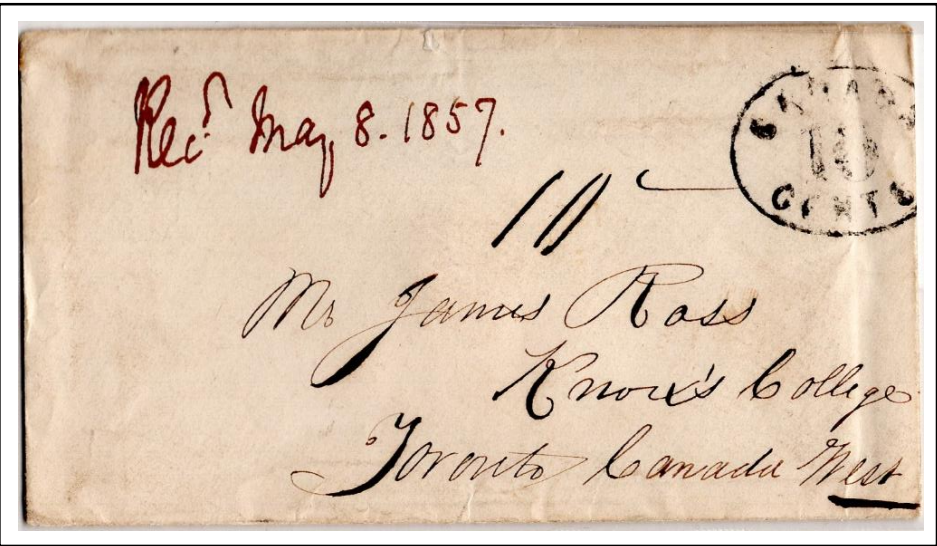 Recd May 8. 1857.
CANADA
10
CENTS
10
Mr James Ross
Knox's College
Toronto Canada West